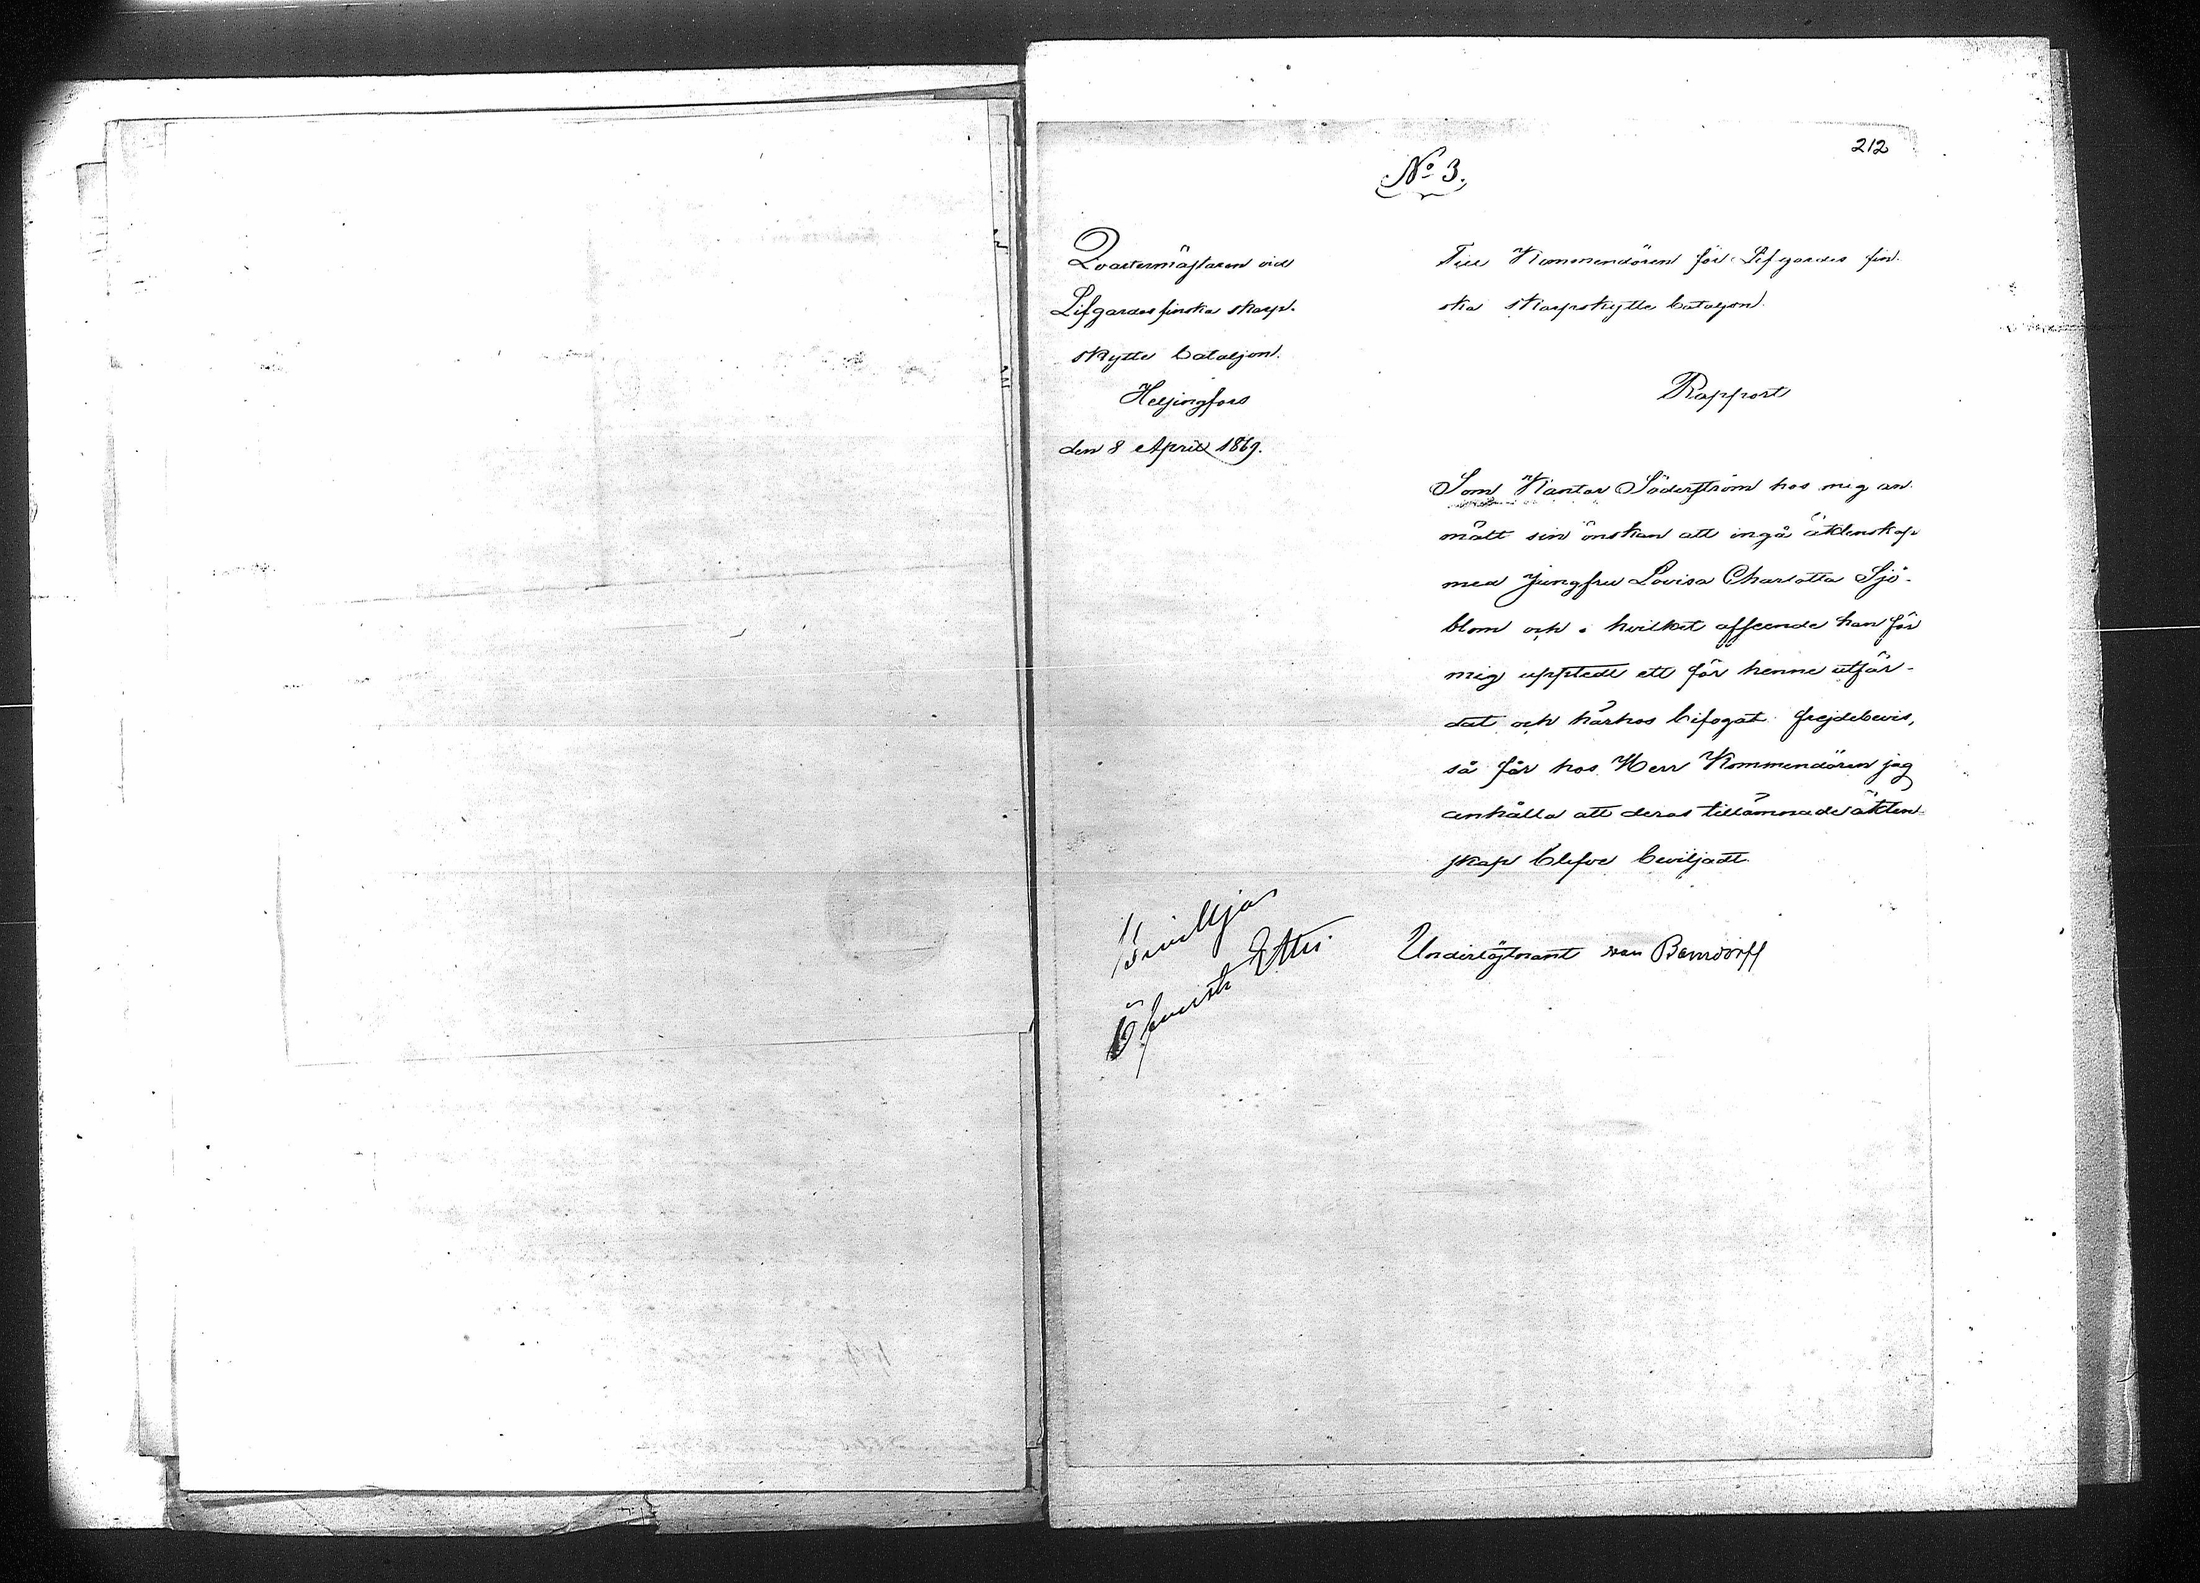 212
No 3.
Qvartermästaren vid
Lifgardes finska skarp-
skytte bataljon.
Helsingfors
den 8 April 1869.
Till Kommendören för Lifgardes fin-
ska skarpskytte bataljon.
Rapport
Som Kantor Söderström hos mig an-
mält sin önskan att ingå äktenskap
med Jungfru Lovisa Charlotta Sjö-
blom och i hvilket afseende han för
mig upptedt ett för henne utfär-
dat och härhos bifogat frejdebevis,
så får hos Herr Kommendören jag
anhålla att deras tillämnade äkten-
skap blefve beviljadt.
Underlöjtnant von
Beviljas
Öfverste